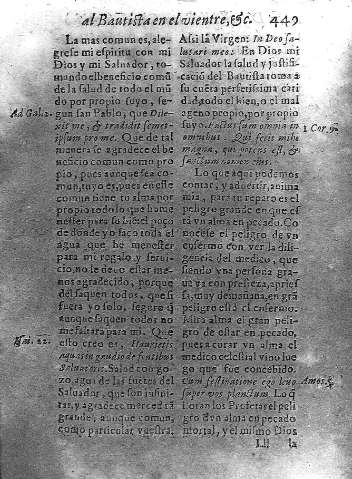 al Bautista en el vientre, &c. 449
La mas comun es, ale-
grese mi espiritu con mi
Dios y mi Saluador, to-
mando el beneficio comũ
de la salud de todo el mũ
do por propio suyo, se-
gun san Pablo, que Dile-
xit me, & tradidit semet-
ipsum pro me. Que de tal
manera se agradece el be
neficio comun como pro
pio, pues aunque sea co-
mun, tuyo es, pues en este
comun tiene tu alma por
propio todo lo que ha me
nester para su
de donde yo saco toda el
agua que he menester
para mi regalo y serui-
cio, no le deuo estar me-
nos agradecido, porque
del saquen todos, que si
fuera yo solo, seguro q̃
aunque saquen todos no
me faltara para mi. Que
esto creo es, Haurietis
aquas in gaudio de fontibus
Saluatoris. Salud con go-
zo, agua de las fuentes del
Saluador, que son infini-
tas, y agradece merced tã
grande, aunque comun,
como particular vuestra.
Ad Gal. 2.
Isai. 12.
Assi la Virgen: In Deo sa-
lutari meo. En Dios mi
Saluador la salud y justifi-
cació del Bautista toma a
su cuẽta perfetissima cari
dad, todo el bien, o el mal
ageno propio, por propio
suyo. Factus sum omnia in
omnibus. Qui fecit mihi
magna, qui potens est, &
sanctum nomen eius.
Lo que aqui podemos
contar, y aduertir, anima
mia, para tu reparo es el
peligro grande en que es
tà vn alma en pecado. Co
nocese el peligro de vn
enfermo con ver la dili-
gencia del medico, que
siendo vna persona gra-
ue va con presteza, apries
sa, muy de mañana, en grã
peligro està el enfermo.
Mira alma el gran peli-
gro de estar en pecado,
pues a curar vn alma el
medico celestial vino lue
go que fue concebido.
Cum festinatione ego
super vos plaustrum. Lo q̃
lloran los Profetas el peli
gro de vn alma en pecado
mortal, y el mismo Dios
1 Cor. 9.
Amos
Lll la